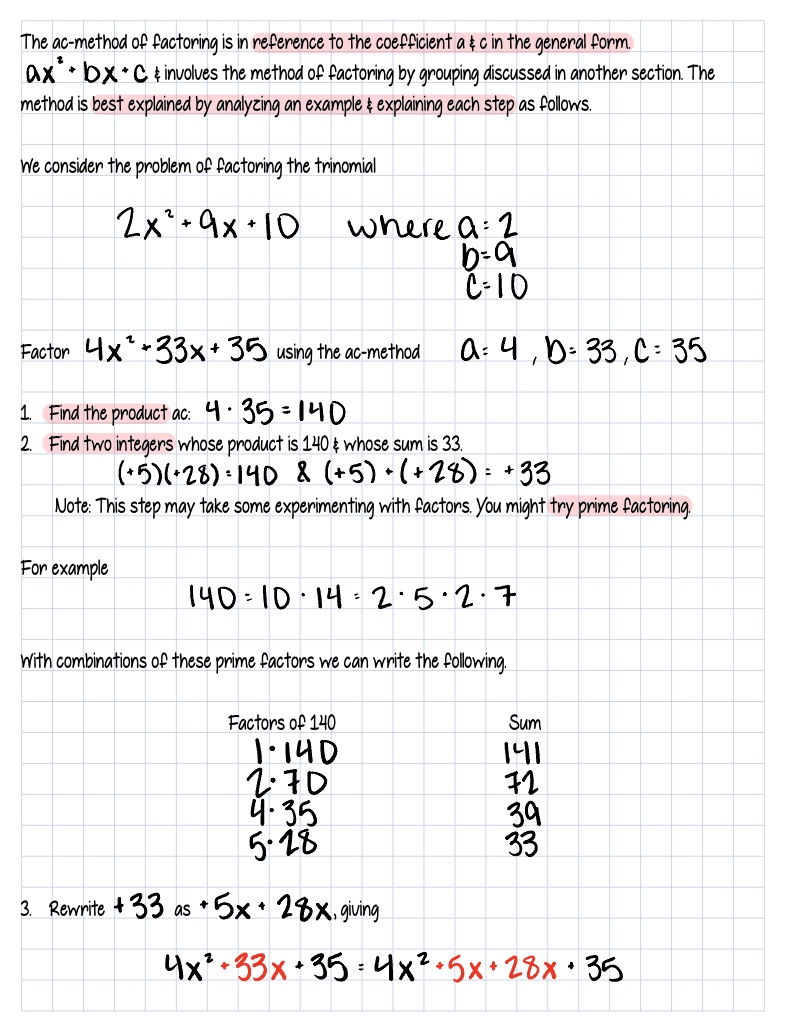 The ac-method of factoring is in reference to the coefficient a & c in the general form.
ax² + bx + c & involves the method of factoring by grouping discussed in another section. The
method is best explained by analyzing an example & explaining each step as follows.
We consider the problem of factoring the trinomial
2x² + 9x + 10 where a = 2
b = 9
c = 10
Factor 4x² + 33x + 35 using the ac-method a = 4, b = 33, c = 35
1. Find the product ac: 4 · 35 = 140
2. Find two integers whose product is 140 & whose sum is 33.
(+5)(+28) = 140 & (+5) + (+28) = +33
Note: This step may take some experimenting with factors. You might try prime factoring.
For example
140 = 10 · 14 = 2 · 5 · 2 · 7
With combinations of these prime factors we can write the following.
Factors of 140 Sum
1 · 140 141
2 · 70 72
4 · 35 39
5 · 28 33
3. Rewrite +33 as +5x + 28x, giving
4x² + 33x + 35 = 4x² + 5x + 28x + 35